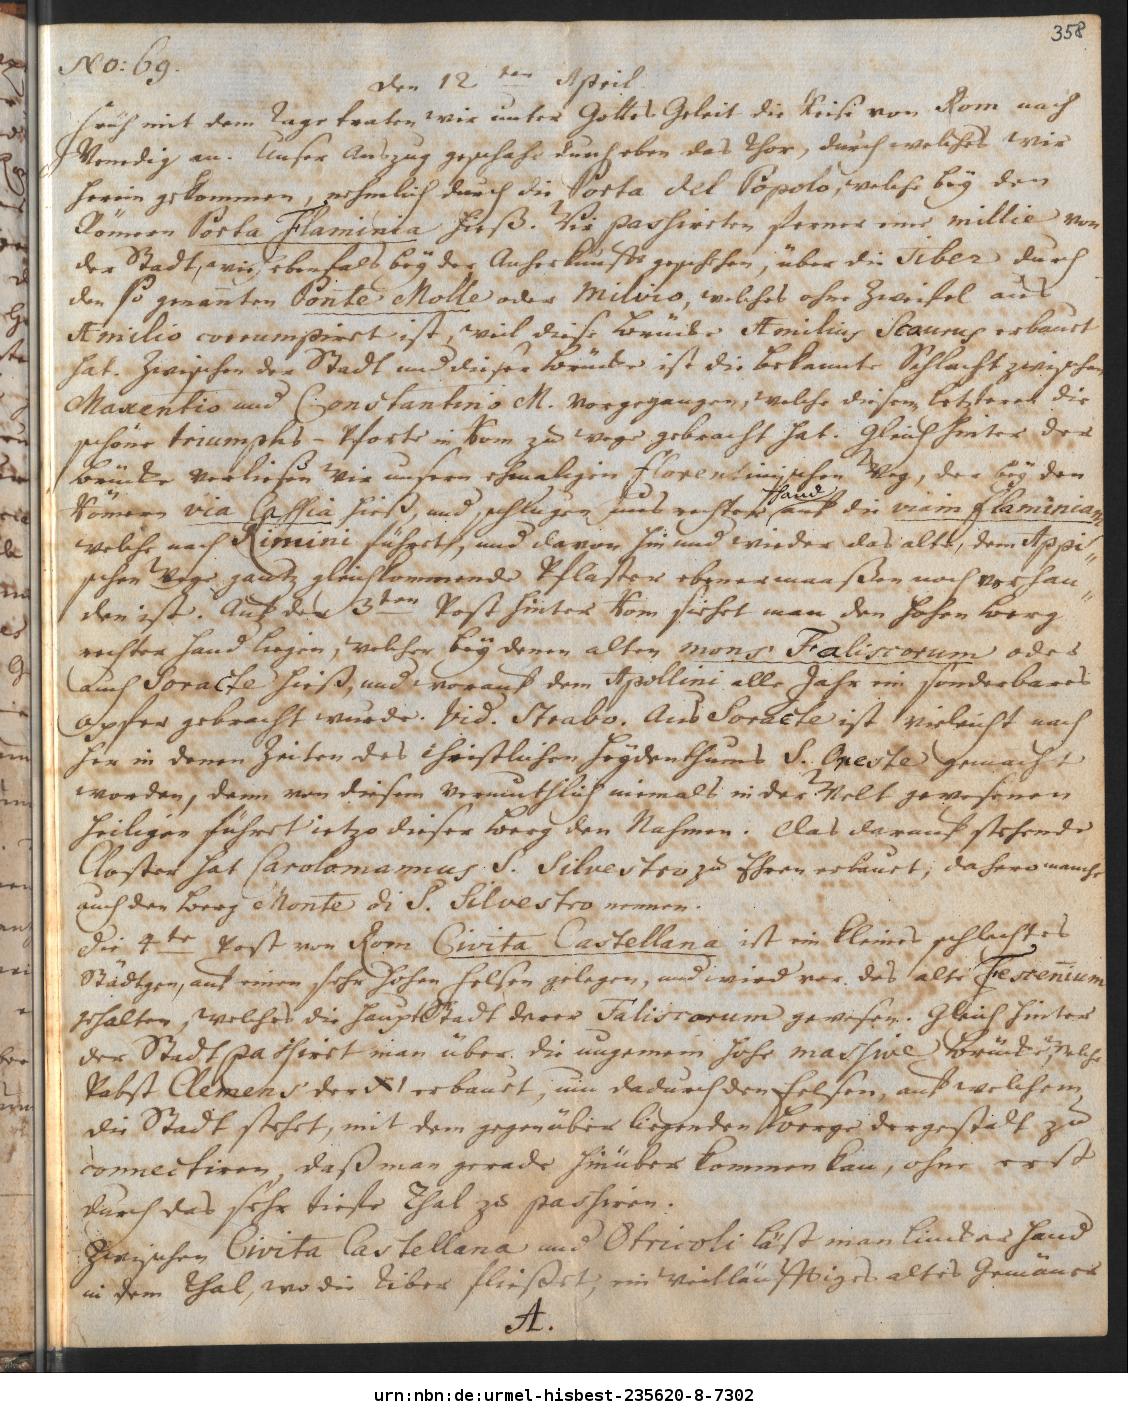 358
No: 69.
den 12 ten April
Früh mit dem Tage traten wir unter Gottes Geleit die Reise von Rom nach
Venedig an. Unser Auszug geschahe durch eben das Thor, durch welches wir
herein gekommen, nehmlich durch die Porta del Popolo, welche bey den
Römern Porta Flaminia hieß. Wir passireten ferner eine millie von
der Stadt, wie ebenfals bey der Anherkunft geschehen, über die Tiber durch
den so genannten Ponte Molle oder Milvio, welches ohne Zweifel aus
Æmilio corrumpiret ist, weil diese Brücke Æmilius Scaurus erbauet
hat. Zwischen der Stadt und dieser Brücke ist die bekannte Schlacht zwischen
Maxentio und Constantino M. vorgegangen, welche diesem letzteren die
schöne triumphs-Pforte in Rom zu wege gebracht hat. Gleich hinter der
Brücke verliesen wir unsern ehmaligen Florentinischen Weg, der bey den
Römern via Cassia hieß, und schlugen uns rechter Hand auf die viam Flaminiam
welche nach Rimini führet, und davon hin und wieder das alte, dem Appi"
schen Wege gantz gleichkommende Pflaster ebenermaaßen noch vorhan"
den ist. Auf der 3ten Post hinter Rom siehet man den hohen Berg
rechter Hand liegen, welcher bey denen alten mons Faliscorum oder
auch Soracte hieß, und worauf dem Apollini alle Jahr ein sonderbares
opfer gebracht wurde. Vid. Strabo. Aus Soracte ist vieleicht nach
her in denen Zeiten des christlichen Heydenthums S. Oreste gemacht
worden, denn von diesem vermuthlich niemals in der Welt gewesenen
Heiligen führet ietzo dieser Berg den Nahmen. Das darauf stehende
Closter hat Carolomannus S. Silvestro zu Ehren erbauet, dahero manche
auch den Berg Monte di S. Silvestro nennen.
Die 4te Post von Rom Civita Castellana ist ein kleines schlechtes
Städtgen, auf einen sehr hohen Felsen gelegen, und wird vor das alte Fescennium
gehalten, welches die Haupt Stadt derer Faliscorum gewesen. Gleich hinter
der Stadt passiret man über die ungemein hohe massive Brücke, welche
Pabst Clemens der XI erbauet, um dadurch den Felsen, auf welchem
die Stadt stehet, mit dem gegenüber liegenden Berge dergestalt zu
connectiren, daß man gerade hinüber kommen kan, ohne erst
durch das sehr tiefe Thal zu passiren.
Zwischen Civita Castellana und Otricoli läst man lincker Hand
in dem Thal, wo die Tiber fließet, ein weitläufftiges altes Gemäuer
A.
urn:nbn:de:urmel-hisbest-235620-8-7302